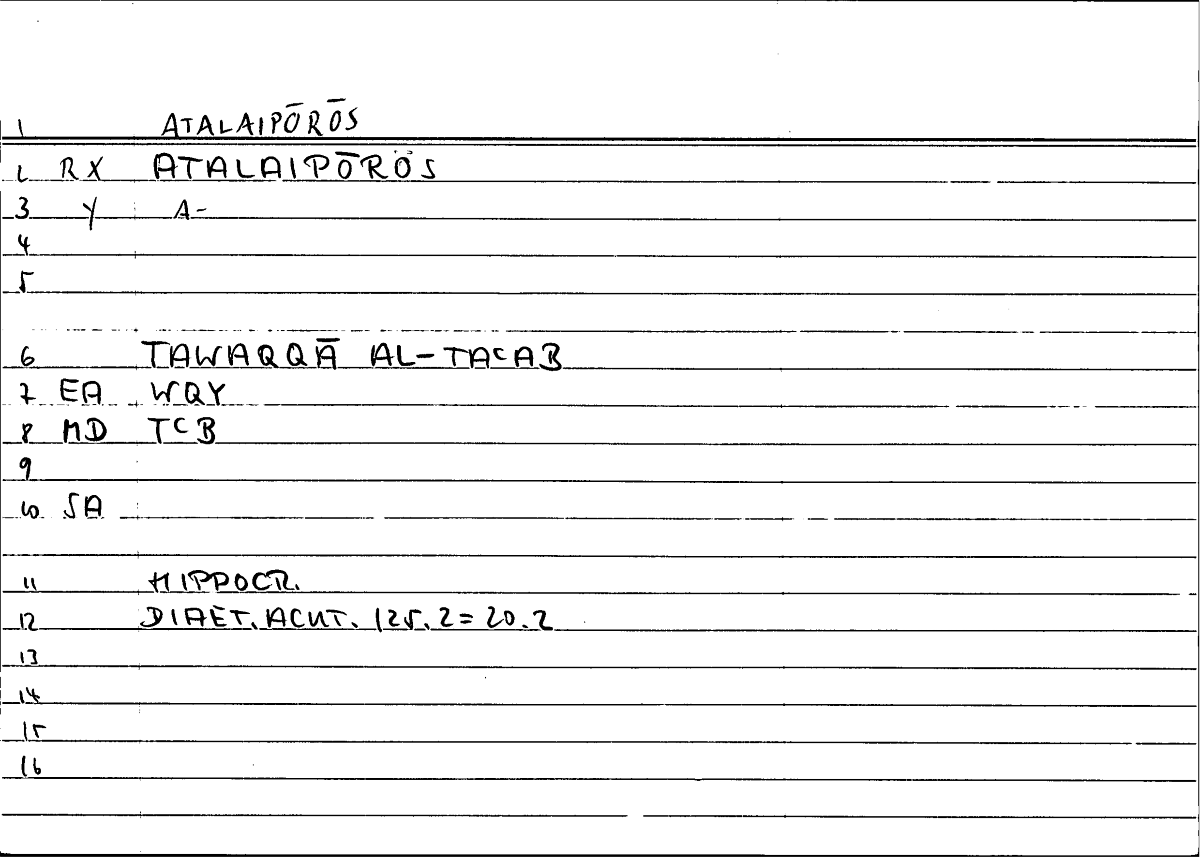 1 ATALAIPŌRŌS
2 RX ATALAIPŌRŌS
3 Y A-
4
5
6 TAWAQQĀ AL-TAᶜAB
7 EA WQY
8 MD TᶜB
9
10 SA
11 HIPPOCR.
12 DIAET. ACUT. 125.2 = 20.2
13
14
15
16